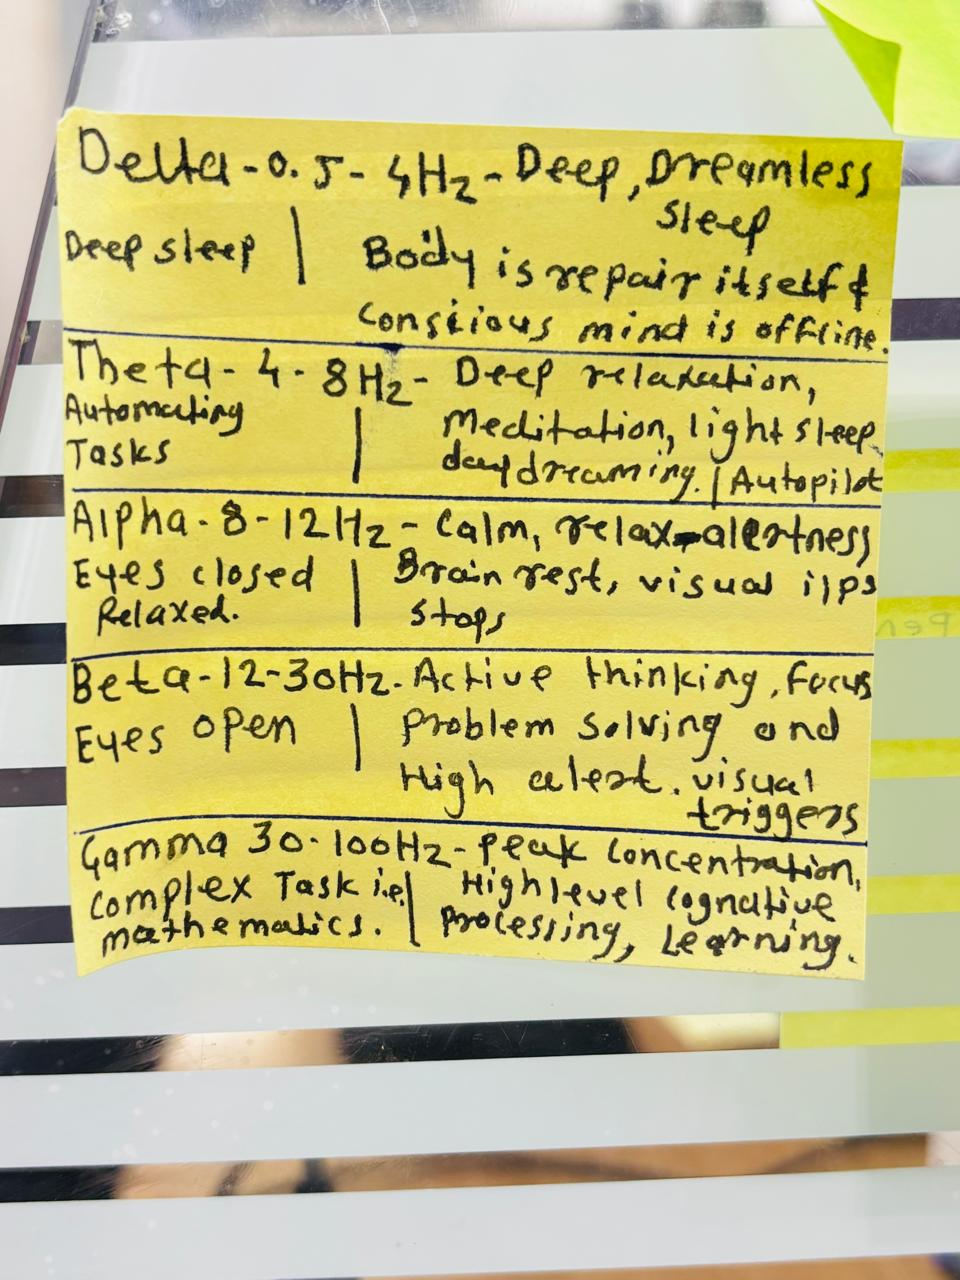 Delta - 0.5 - 4Hz - Deep, Dreamless
sleep
Deep sleep | Body is repair itself &
conscious mind is offline.
Theta - 4 - 8Hz - Deep relaxation,
Automating | Meditation, light sleep
Tasks daydreaming. | Autopilot
Alpha - 8 - 12Hz - Calm, relax-alertness
Eyes closed | Brain rest, visual i/ps
Relaxed. stops
Beta - 12 - 30Hz - Active thinking, focus
Eyes open | Problem solving and
High alert. visual
triggers
Gamma 30 - 100Hz - Peak concentration,
Complex Task i.e. | High level cognative
mathematics. Processing, Learning.